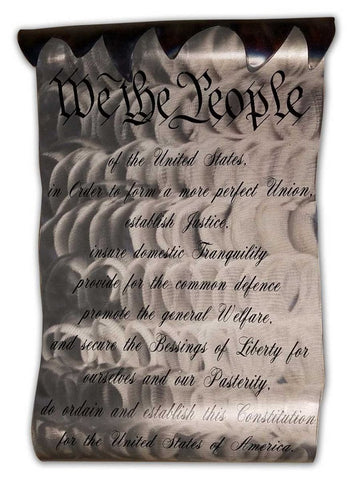 We the People
of the United States,
in Order to form a more perfect Union,
establish Justice,
insure domestic Tranquility
provide for the common defence
promote the general Welfare,
and secure the Bessings of Liberty for
ourselves and our Pasterity,
do ordain and establish this Constitution
for the United States of America.